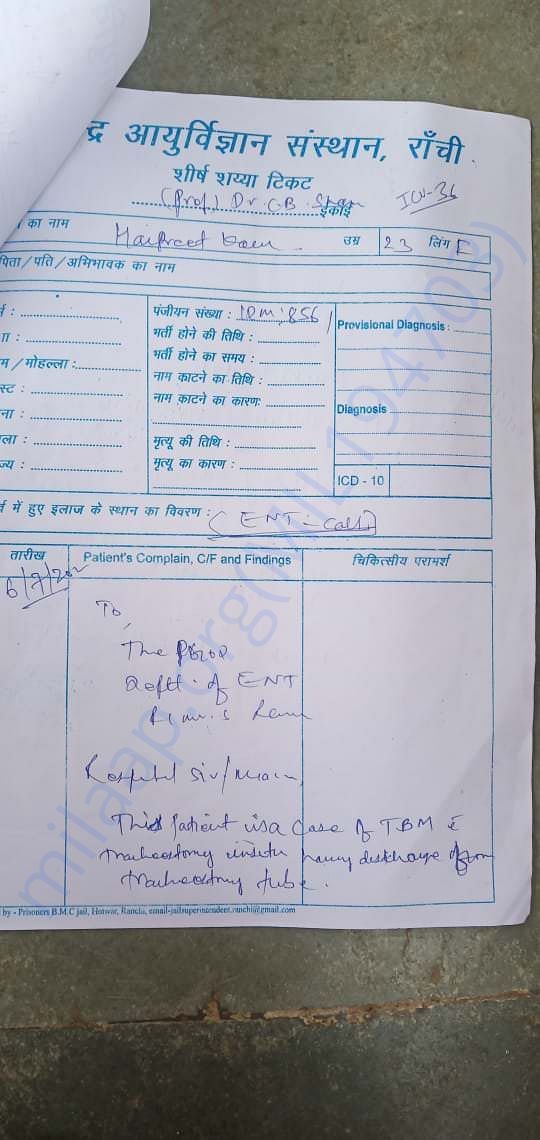 द्र आयुर्विज्ञान संस्थान, राँची
शीर्ष शय्या टिकट
(Prof) Dr. C.B. इकाई
ICU-36
का नाम Harpreet Kaur उम्र 23 लिंग F
पिता/पति/अभिभावक का नाम
पंजीयन संख्या : IDM:856
भर्ती होने की तिथि :
म/मोहल्ला : भर्ती होने का समय :
स्ट : नाम काटने का तिथि :
ना : नाम काटने का कारण:
ला : मृत्यू की तिथि :
ज्य : मृत्यू का कारण :
Provisional Diagnosis :
Diagnosis
ICD - 10
में हुए इलाज के स्थान का विवरण : (ENT-call)
तारीख Patient's Complain, C/F and Findings चिकित्सीय परामर्श
6/7/202
To,
The
Deptt. of ENT
Respected Sir/Maam,
This patient is a case of TBM c̄
tracheostomy insitu having discharge from
tracheostomy tube.
by - Prisoners B.M.C jail, Hotwar, Ranchi, email-jailsuperintendent.ranchi@gmail.com
milaap.org(MIL194703)